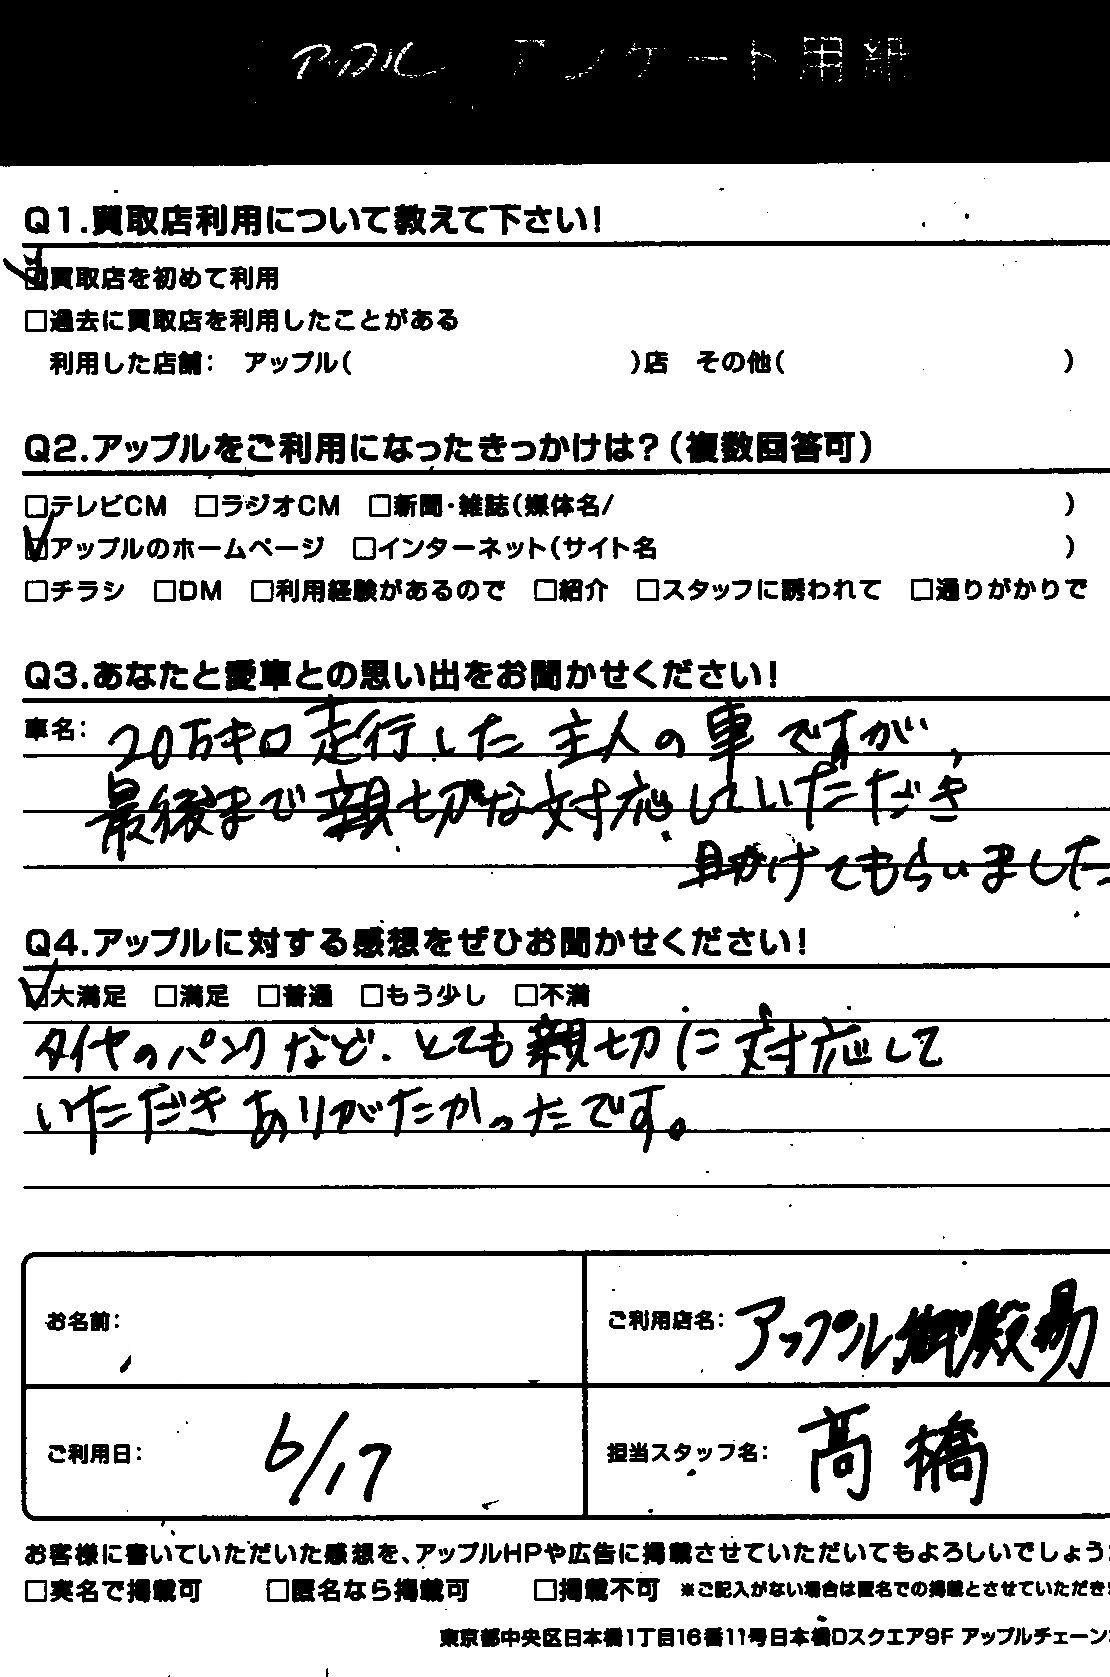 アップル アンケート用紙
Q1.買取店利用について教えて下さい!
☑買取店を初めて利用
□過去に買取店を利用したことがある
利用した店舗: アップル( )店 その他( )
Q2.アップルをご利用になったきっかけは?(複数回答可)
□テレビCM □ラジオCM □新聞・雑誌(媒体名/ )
☑アップルのホームページ □インターネット(サイト名 )
□チラシ □DM □利用経験があるので □紹介 □スタッフに誘われて □通りがかりで
Q3.あなたと愛車との思い出をお聞かせください!
車名: 20万キロ走行した主人の車ですが、
最後まで親切な対応していただき
助けてもらいました
Q4.アップルに対する感想をぜひお聞かせください!
☑大満足 □満足 □普通 □もう少し □不満
タイヤのパンクなど、とても親切に対応して
いただきありがたかったです。
お名前:
ご利用店名: アップル御殿場
ご利用日: 6/17
担当スタッフ名: 高橋
お客様に書いていただいた感想を、アップルHPや広告に掲載させていただいてもよろしいでしょう
□実名で掲載可 □匿名なら掲載可 □掲載不可 ※ご記入がない場合は匿名での掲載とさせていただき
東京都中央区日本橋1丁目16番11号日本橋Dスクエア9F アップルチェーン